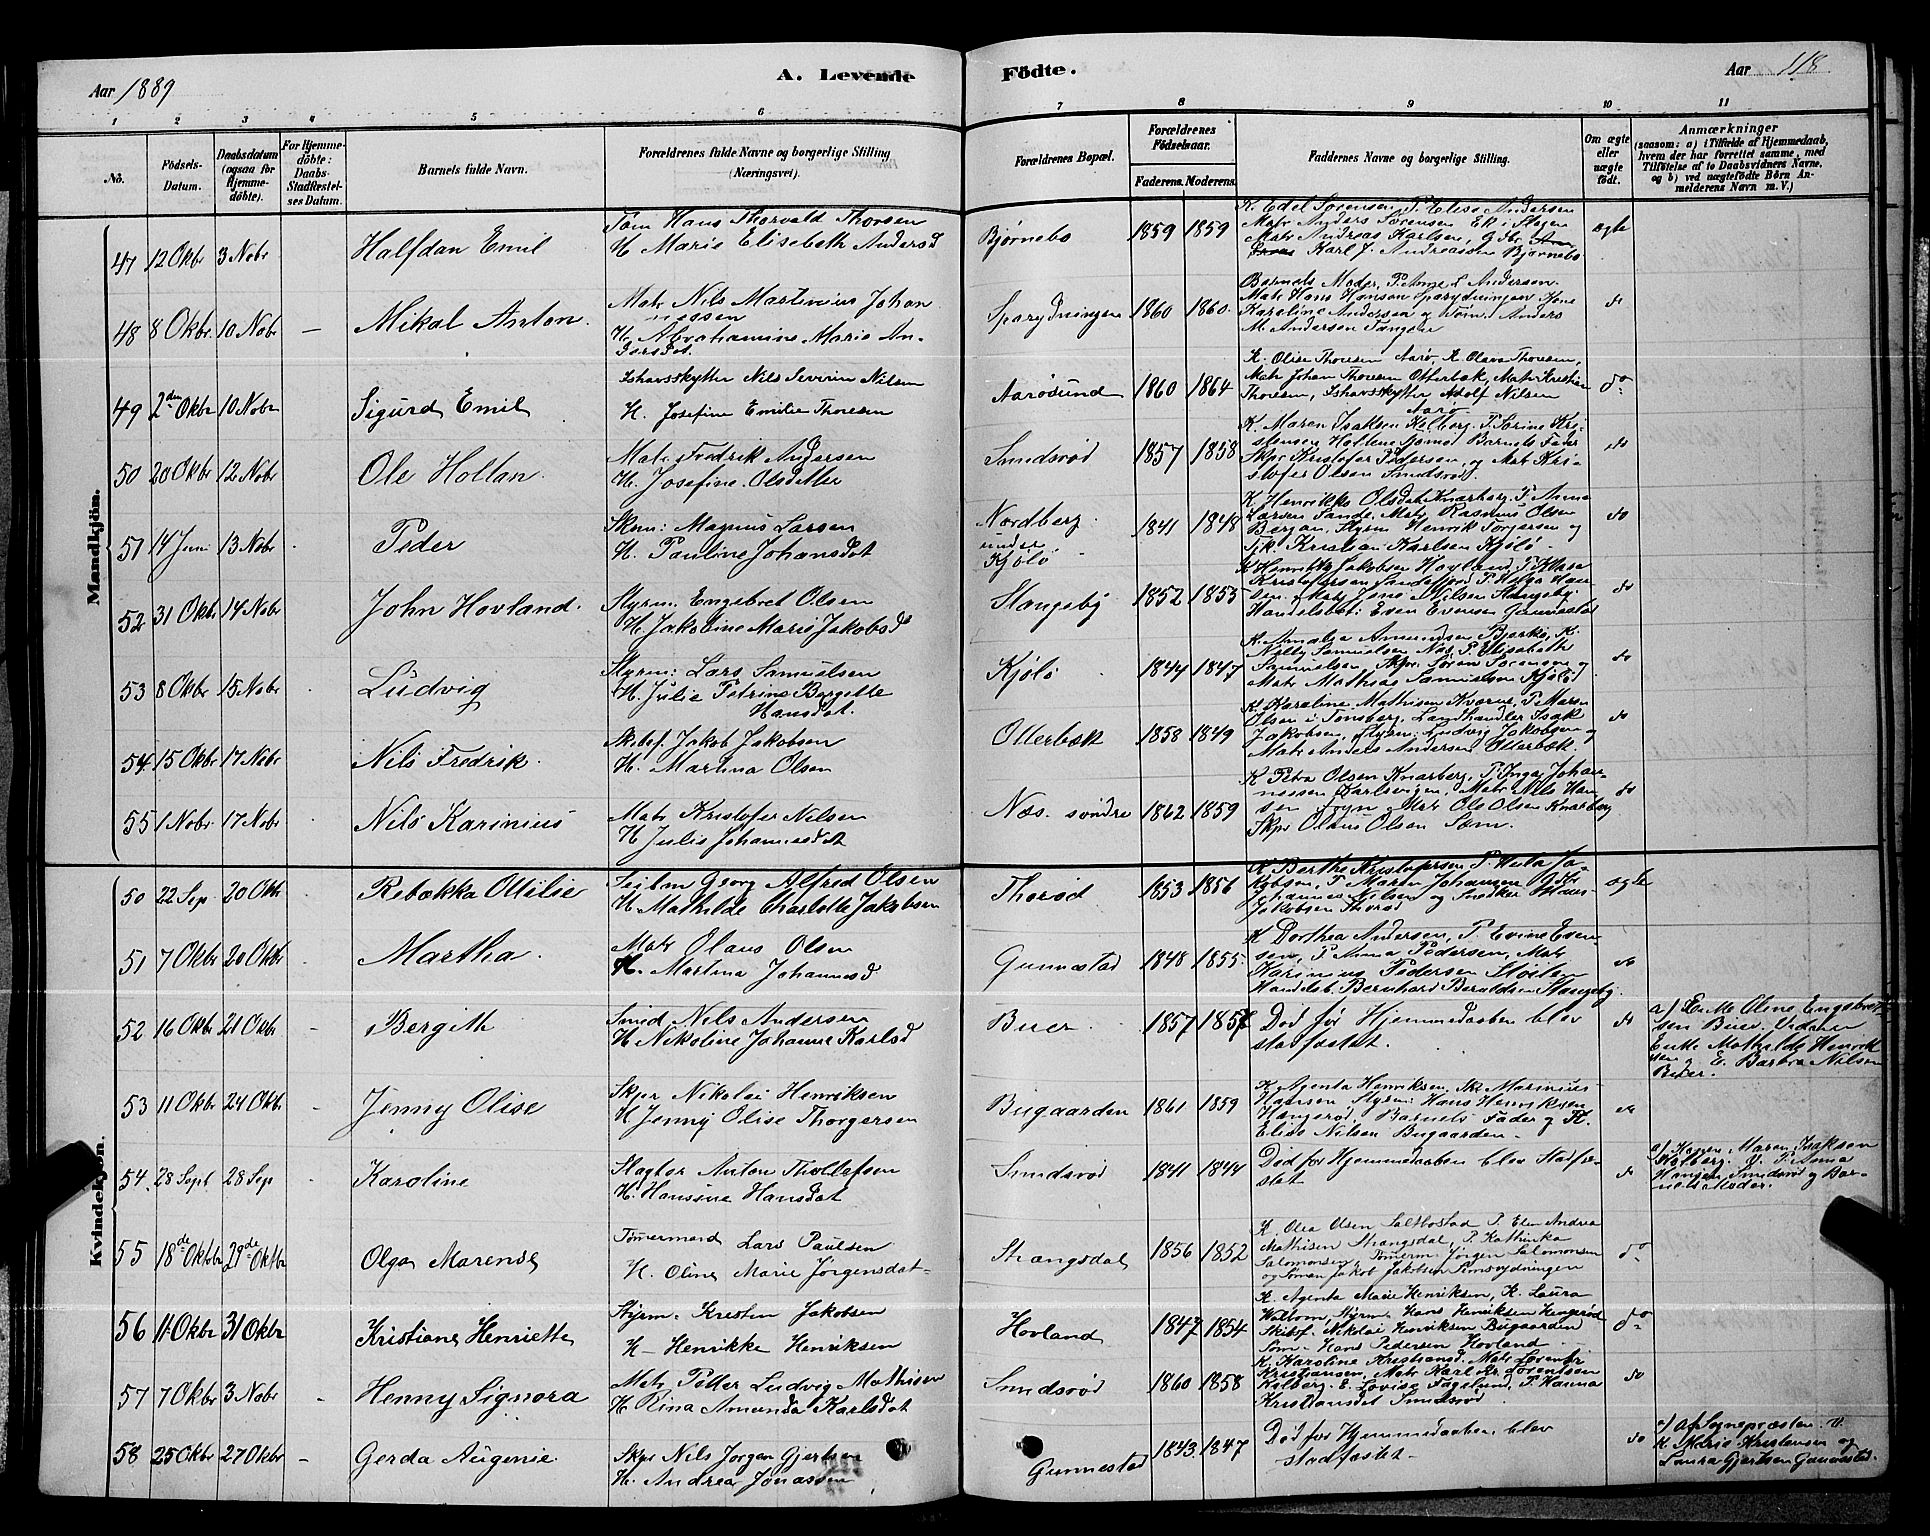 Aar 1889
A. Levende
Födte.
Aar 118
1 2 3 4 5 6 7 8 9 10 11
No.
Födsels-Datum.
Daabsdatum (ogsaa for Hjemme-döbte).
For Hjemme-döbte: Daabs-Stadfæstel-ses Datum.
Barnets fulde Navn.
Forældrenes fulde Navne og borgerlige Stilling (Næringsvei).
Forældrenes Bopæl.
Forældrenes Födselsaar.
Faderens. Moderens.
Faddernes Navne og borgerlige Stilling.
Om ægte eller uægte födt.
Anmærkninger
(saasom: a) i Tilfælde af Hjemmedaab, hvem der har forrettet samme, med Tilföielse af to Daabsvidners Navne, og b) ved uægtefödte Börn An-melderens Navn m. V.)
Mandkjön.
47 12 Oktbr 3 Novbr Halfdan Emil
Töm Hans Thorvald Thorsen
H Marie Elisabeth Andersd
Bjørnebo 1859 1859
K. Edel Sørensen, P. Elise Andersen
Matr Anders Sørensen Ek i Skogen
Matr Andreas Karlsen, G. Kr.
Karl J. Andreassen Bjørnebo
ægte
48 8 Oktbr. 10 Novbr – Mikal Anton.
Matr Nils Martinius Johan
nessen
H. Abrahamine Marie An-
dersdt.
Sparydningen 1860 1860.
Barnets Moder, P. Ane L Andersen.
Matr Hans Hansen Sparydningen
Karoline Andersen og Tøm. Anders
M. Andersen Tangen
do
49 2den Oktbr 10 Novbr Sigurd Emil
Ishavsskytter Nils Severin Nilsen
H. Josefine Emilie Thoresen
Aarøsund 1860 1864
K. Olise Thoresen Aarø, K. Olava Thoresen,
Matr Johan Thoresen Otterbæk, Matr Kristian
Thoresen, Ishavsskytter Adolf Nilsen
Aarø
do
50 20 Oktbr 12 Novbr Ole Hollan.
Matr Fredrik Andersen
H. Josefine Olsdatter
Smidsrød 1857 1858
K. Maren Isaksen Kolberg. P. Sørine Kri-
stensen Holtene, Barnets Fader
Skpr Kristofer Pedersen, og Matr Kri-
stofer Olsen Smidsrød
do
51 14 Juni 13 Novbr Peder
Skm: Magnus Larsen
H. Pauline Johansdat
Nordberg
under
Kjølø
1841 1848
K Henrikke Olsdat Knarberg, P Anna
Larsen Sande, Matr Rasmus Olsen
Bergan, Styrm Henrik Torgersen og
Tjk. Kristian Karlsen Kjølø
do
52 31 Oktbr 14 Novbr John Hovland.
Styrm. Engebret Olsen
H. Jakobine Marie Jakobsd
Stangeby 1852 1855
K Henrikke Jakobsen Hovland, P.
Kristofersen Sandefjord P. Helga Han-
sen, Matr Jens Nilsen Stangeby.
Handelsbet: Even Evensen Gunnestad
do
53 8 Oktbr 15 Novbr Ludvig
Styrm: Lars Samuelsen
H. Julie Petrine Bergitte
Hansdat.
Kjølø 1844 1847
K. Amalie Amundsen Bjerkø, K.
Nelly Samuelsen Næs, P. Elisabeth
Samuelsen, Skpr Søren Sørensen og
Matr Mathias Samuelsen Kjøløs
do
54 15 Oktbr 17 Novbr Nils Fredrik.
Skibsf. Jakob Jakobsen
H. Martina Olsen
Otterbæk 1858 1849
K. Karoline Mathisen Kværne, P. Maren
Olsen i Tønsberg, Landhandler Isak
Jakobsen, Styrm: Ludvig Jakobsen og
Matr Anders Andersen Otterbæk.
do
55 1 Novbr. 17 Novbr Nils Karinius
Matr Kristofer Nilsen
H Julie Johannesdat
Næs. søndre 1862 1859
K Petra Olsen Knarberg, P. Inga Johan-
nessen Karlsvigen, Matr Nils Han-
sen Foyn Matr Ole Olsen Knarberg
Skpr Olaus Olsen Sem.
do
Kvindekjön.
50 22 Sep 20 Oktbr Rebækka Ottilie
Seilm Georg Alfred Olsen
H. Mathilde Charlotte Jakobsen
Thorød 1853 1856
K. Berthe Kristofersen, P. Hela Ja-
kobsen, P Martin Johansen Gdbr
Johannes Nilsen og Snedker Hans
Jakobsen Thorød
ægte
51 7 Oktbr 20 Oktbr Martha.
Matr Olaus Olsen
H. Martina Johannesd
Gunnestad 1848 1855.
K Dorthea Andersen, P. Evine Even-
sen, P. Anna Pedersen, Matr
Karinius Pedersen Støiten
Handelsb. Bernhard Berntsen Stangeby.
do
52 16 Oktbr 21 Oktbr – Bergith
Smed Nils Andersen
H Nikoline Johanne Karlsd
Buer 1857 1857
Død før Hjemmedaaben blev
stadfæstet.
do
a) Enke Oline Engebret-
sen Buer. Vidner
Enke Mathilde Henrik
sen og E. Barbra Nilsen
Buer.
53 11 Oktbr 24 Oktb. – Jenny Olise
Skpr Nikolai Henriksen
H Jenny Olise Thorgersen
Bugaarden 1861 1859
K Agenta Henriksen, Sk Marinius
Hansen Styrm: Hans Henriksen
Hengerød, Barnets Fader og K.
Elise Nilsen Bugaarden.
do
54. 28 Sept 28 Sep Karoline
Slagter Anton Thollefsen
H. Hansine Hansdat
Smidsrød 1841 1844
Død før Hjemmedaaben blev Stadfæ-
stet
do
a) Konen Maren Isaksen
Kolberg. V. P. Anna
Hansen Smidsrød og Bar-
nets Moder.
55 18de Oktbr 29de Oktbr Olga Marense
Tømermand Lars Paulsen
H. Oline Marie Jørgensdat
Strangsdal 1856 1852
K. Olea Olsen Saltbostad P. Elen Andrea
Mathisen Strangsdal, P. Kathinka
Salomonsen, Tømerm: Jørgen Salomonsen
og Sømand Jakob Jakobsen Semsrydningen
do
56 11 Oktbr 31 Oktbr Kristiane Henriette
Styrm. Kresten Jakobsen
H Henrikke Henriksen
Hovland 1847 1854
K. Agenta Marie Henriksen, K. Laura
Walbom, Styrm. Hans Henriksen Hengerød
Skibsf. Nikolai Henriksen Bugaarden
Søm- Hans Pedersen Hovland
do
57 7 Oktbr 3 Novbr – Henny Signora
Matr Petter Ludvig Mathisen
H Rina Amunda Karlsdat
Smidsrød 1860 1858
K. Karoline Kristiansd. Matr Lorentz
Kristiansen, Matr Karl Kr. Lorentsen
Kolberg. E. Lovise Fagelund, P. Hanna
Kristiansdat Smidsrød
do
58 25 Oktbr 27 Oktbr – Gerda Augenie.
Skpr Nils Jørgen Gjertsen
H. Andrea Jonassen
Gunnestad 1843. 1847
Død før Hjemmedaaben blev
stadfæstet-
do
a) af Sognepræsten. V.
K. Marie Kristensen og
Laura Gjertsen Gunnestad.